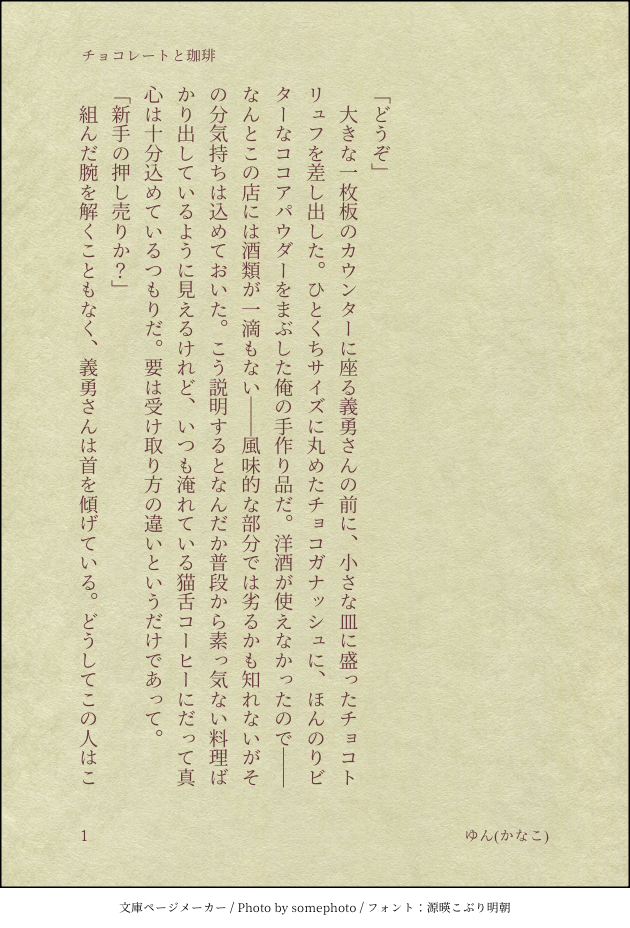 チョコレートと珈琲
「どうぞ」
　大きな一枚板のカウンターに座る義勇さんの前に、小さな皿に盛ったチョコト
リュフを差し出した。ひとくちサイズに丸めたチョコガナッシュに、ほんのりビ
ターなココアパウダーをまぶした俺の手作り品だ。洋酒が使えなかったので――
なんとこの店には酒類が一滴もない――風味的な部分では劣るかも知れないがそ
の分気持ちは込めておいた。こう説明するとなんだか普段から素っ気ない料理ば
かり出しているように見えるけれど、いつも淹れている猫舌コーヒーにだって真
心は十分込めているつもりだ。要は受け取り方の違いというだけであって。
「新手の押し売りか？」
　組んだ腕を解くこともなく、義勇さんは首を傾げている。どうしてこの人はこ
1
ゆん(かなこ)
文庫ページメーカー / Photo by somephoto / フォント：源暎こぶり明朝